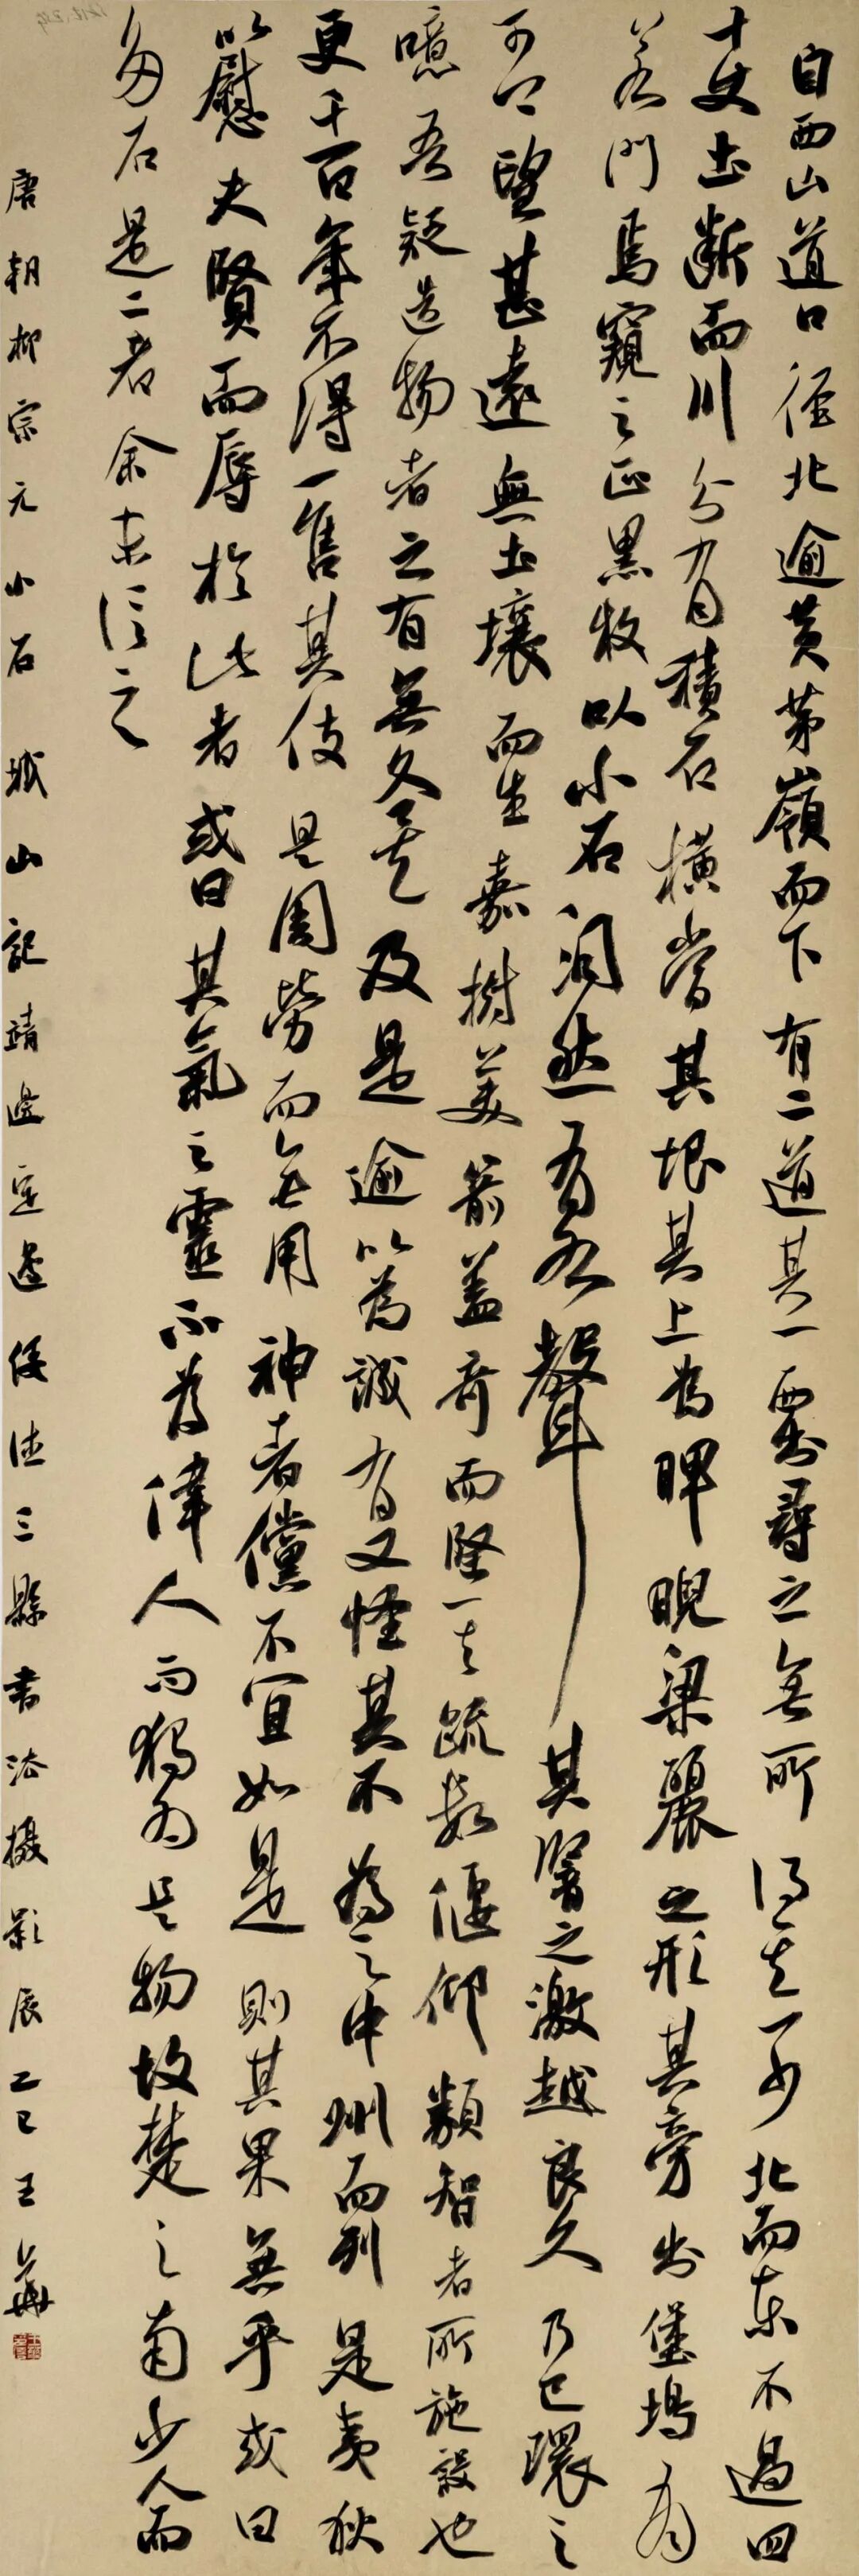 自西山道口徑北逾黃茅嶺而下有二道其一西出尋之無所得其一少北而東不過四
十丈土斷而川分有積石橫當其垠其上為睥睨梁麗之形其旁出堡塢有
若門焉窺之正黑投以小石洞然有水聲其響之激越良久乃已環之
可上望甚遠無土壤而生嘉樹美箭益奇而堅其疏數偃仰類智者所施設也
噫吾疑造物者之有無久矣及是逾以為誠有又怪其不為之中州而列是夷狄
更千百年不得一售其伎是固勞而無用神者儻不宜如是則其果無乎或曰
以慰夫賢而辱於此者或曰其氣之靈不為偉人而獨為是物故楚之南少人而
多石是二者余未信之
唐朝柳宗元小石城山記靖邊定邊綏德三縣書法摄影展乙巳王華